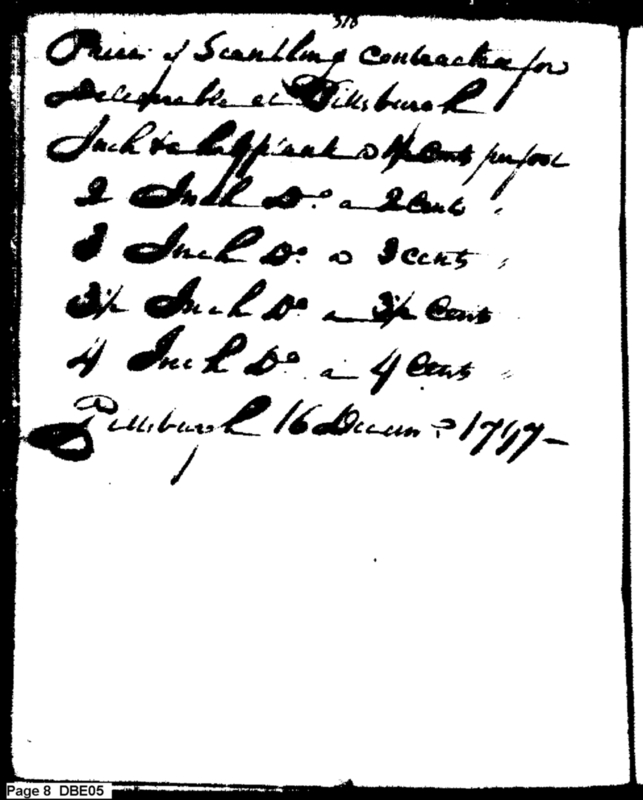 Price of Scantling contracted for
Deliverable at Pittsburgh
Inch & a half plank a 1½ Cents per foot
2 Inch Do. a 2 Cents "
3 Inch Do. a 3 cents "
3½ Inch Do a 3½ Cents
4 Inch Do a 4 Cents "
Pittsburgh 16 Decemr 1797 —
Page 8 DBE05